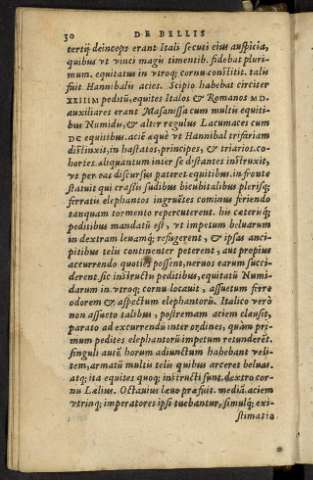 30 DE BELLIS
tertij deinceps erant Itali secuti eius auspicia,
quibus vt vinci magis timentib. fidebat pluri-
mum. equitatus in vtroq; cornu constitit. talis
fuit Hannibalis acies. Scipio habebat circiter
XXIIIM peditū, equites Italos & Romanos MD.
auxiliares erant Masanissa cum multis equiti-
bus Numidis, & alter regulus Lacumaces cum
DC equitibus. acië æquè vt Hannibal trifariam
distinxit, in hastatos, principes, & triarios. co-
hortes aliquantum inter se distantes instruxit,
vt per eas discursus pateret equitibus. in fronte
statuit qui crassis sudibus bicubitalibus plerisq;
ferratis elephantos ingruētes cominus feriendo
tanquam tormento repercuterent. his ceterisq;
peditibus mandatū est, vt impetum beluarum
in dextram leuamq; refugerent, & ipsas anci-
pitibus telis continenter peterent, aut propius
accurrendo quoties possent, neruos earum succi-
derent. sic instructis peditibus, equitatū Numi-
darum in vtroq; cornu locauit, assuetum ferre
odorem & aspectum elephantorū. Italico verò
non assueto talibus, postremam aciem clausit,
parato ad excurrendū inter ordines, quàm pri-
mum pedites elephantorū impetum retunderēt.
singuli autē horum adiunctum habebant veli-
tem, armatū multis telis quibus arceret beluas.
atq; ita equites quoq; instructi sunt. dextro cor-
nu Lælius. Octauius læuo præfuit. mediā aciem
vtrinq; imperatores ipsi tuebantur, simulq; exi-
stimatio